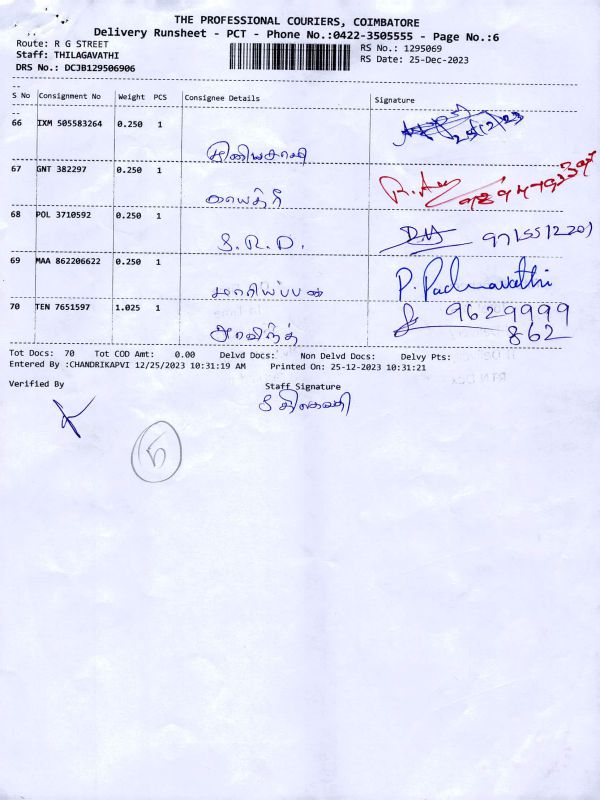 THE PROFESSIONAL COURIERS, COIMBATORE
Delivery Runsheet - PCT - Phone No.:0422-3505555 - Page No.:6
Route: R G STREET
RS No.: 1295069
Staff: THILAGAVATHI
RS Date: 25-Dec-2023
DRS No.: DCJB129506906
S No Consignment No Weight PCS Consignee Details Signature
66 IXM 505583264 0.250 1
25/12/23
67 GNT 382297 0.250 1
காயத்ரி
68 POL 3710592 0.250 1
S. R. D. 9715512201
69 MAA 862206622 0.250 1
மாரியப்பன் P. Padmavathi
70 TEN 7651597 1.025 1
அரவிந்த் 9629999
862
Tot Docs: 70 Tot COD Amt: 0.00 Delvd Docs: Non Delvd Docs: Delvy Pts:
Entered By :CHANDRIKAPVI 12/25/2023 10:31:19 AM Printed On: 25-12-2023 10:31:21
Verified By Staff Signature
S திலகவதி
5